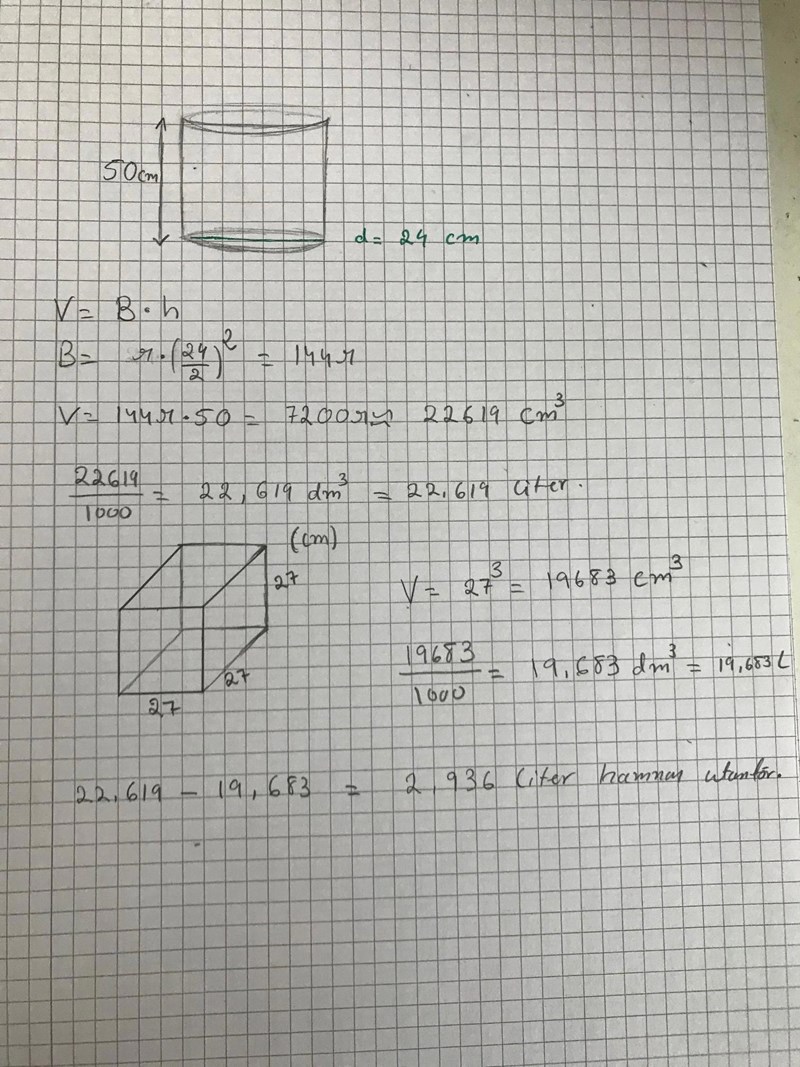 50cm
d= 24 cm
V= B·h
B= π·(24/2)² = 144π
V= 144π·50 = 7200π≈ 22619 cm³
22619/1000 = 22,619 dm³ = 22,619 liter.
(cm)
27
27
27
V= 27³ = 19683 cm³
19683/1000 = 19,683 dm³ = 19,683 L
22,619 − 19,683 = 2,936 liter hamnar utanför.